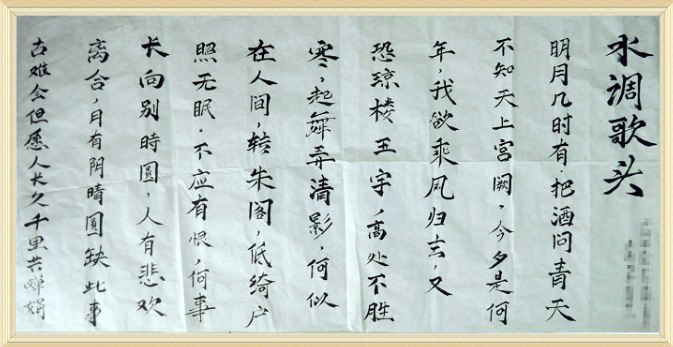 水调歌头
明月几时有.把酒问青天
不知天上宫阙,今夕是何
年,我欲乘风归去,又
恐琼楼玉宇,高处不胜
寒,起舞弄清影,何似
在人间,转朱阁,低绮户
照无眠.不应有恨,何事
长向别時圆,人有悲欢
离合,月有阴晴圆缺此事
古难全但愿人长久千里共婵娟